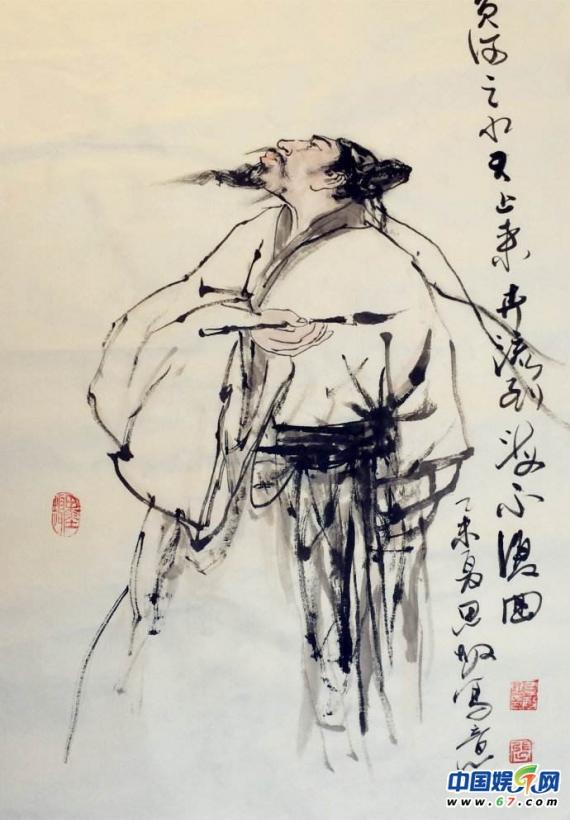 黄河之水天上来奔流到海不復回
乙未夏思写意
中国娱乐网
www.67.com